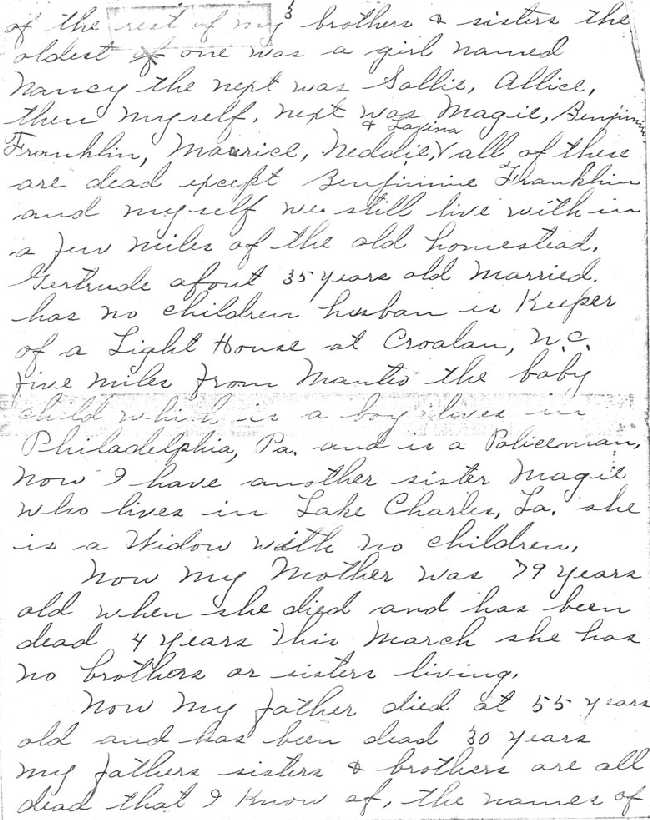 of the rest of my brothers & sisters the
3
oldest of one was a girl named
Nancy the next was Sallie, Allice,
then myself, next was Magie, Benjimin
& Lavina
Franklin, Maurice, Neddie, all of these
are dead except Benjimine Franklin
and myself we still live with in
a few miles of the old homestead.
Gertrude afout 35 years old married.
has no children husban is Keeper
of a Light House at Croatan, N.C.
five miles from Manteo the baby
child which is a boy lives in
Philadelphia, Pa. and is a Policeman.
Now I have another sister Magie
who lives in Lake Charles, La. she
is a Widow with no children.
Now my Mother was 79 years
old when she died and has been
dead 4 years this March she has
no brothers or sisters living.
Now my father died at 55 years
old and has been dead 30 years
my fathers sisters & brothers are all
dead that I know of, the names of